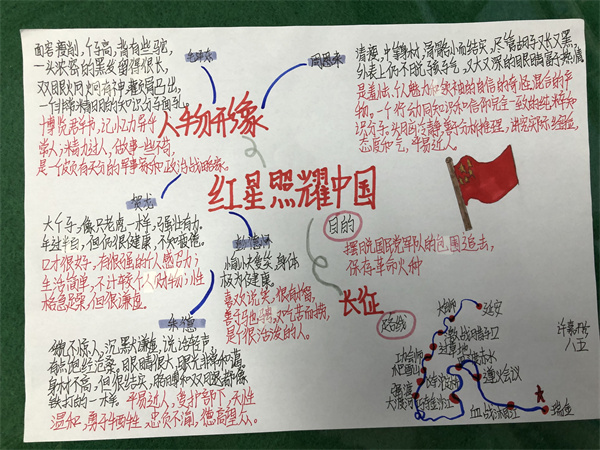 毛泽东
面容瘦削,个子高,背有些驼,
一头浓密的黑发留得很长,
双目炯炯有神,鼻梁
凸出,
一个
的知识分子面孔,
博览群书,记忆力异乎
常人,精力过人,做事一丝不苟,
是一位颇有天分的军事家和政治战略家。
周恩来
清瘦,中等身材,骨骼小而结实,尽管胡子又长又黑,
外表上仍不脱孩子气,又大又深的眼睛富于热情
是羞怯,个人魅力和领袖的自信的奇怪混合的产
物。一个行动同知识和信仰完全一致的纯粹知
识分子。头脑冷静,善于分析推理,讲究实际经验,
态度和气,平易近人。
人物形象
红星照耀中国
贺龙
大个子,像只老虎一样,强壮有力
年过半百,但仍很健康,不知疲倦。
口才很好,有很强的个人感召力;
生活简单,不计较个人财物;性
格急躁,但很谦虚。
彭德怀
愉快爱笑,身体
极为健康。
喜欢说笑,很有才智,
善于驰骋,又吃苦耐劳,
是个很活泼的人。
朱德
貌不惊人,沉默谦虚,说话轻声
有点饱经沧桑,眼睛很大,眼光非常和蔼,
身材不高,但很结实,胳膊和双腿都像
铁打的一样。平易近人,爱护部下,天性
温和,勇于牺牲,忠贞不渝,德高望众。
目的
摆脱国民党军队的包围追击,
保存革命火种
长征
路线
大会师
延安
激战腊子口
过草地
四渡赤水
遵义会议
巧渡金沙江
强渡
大渡河
血战湘江
瑞金
八五